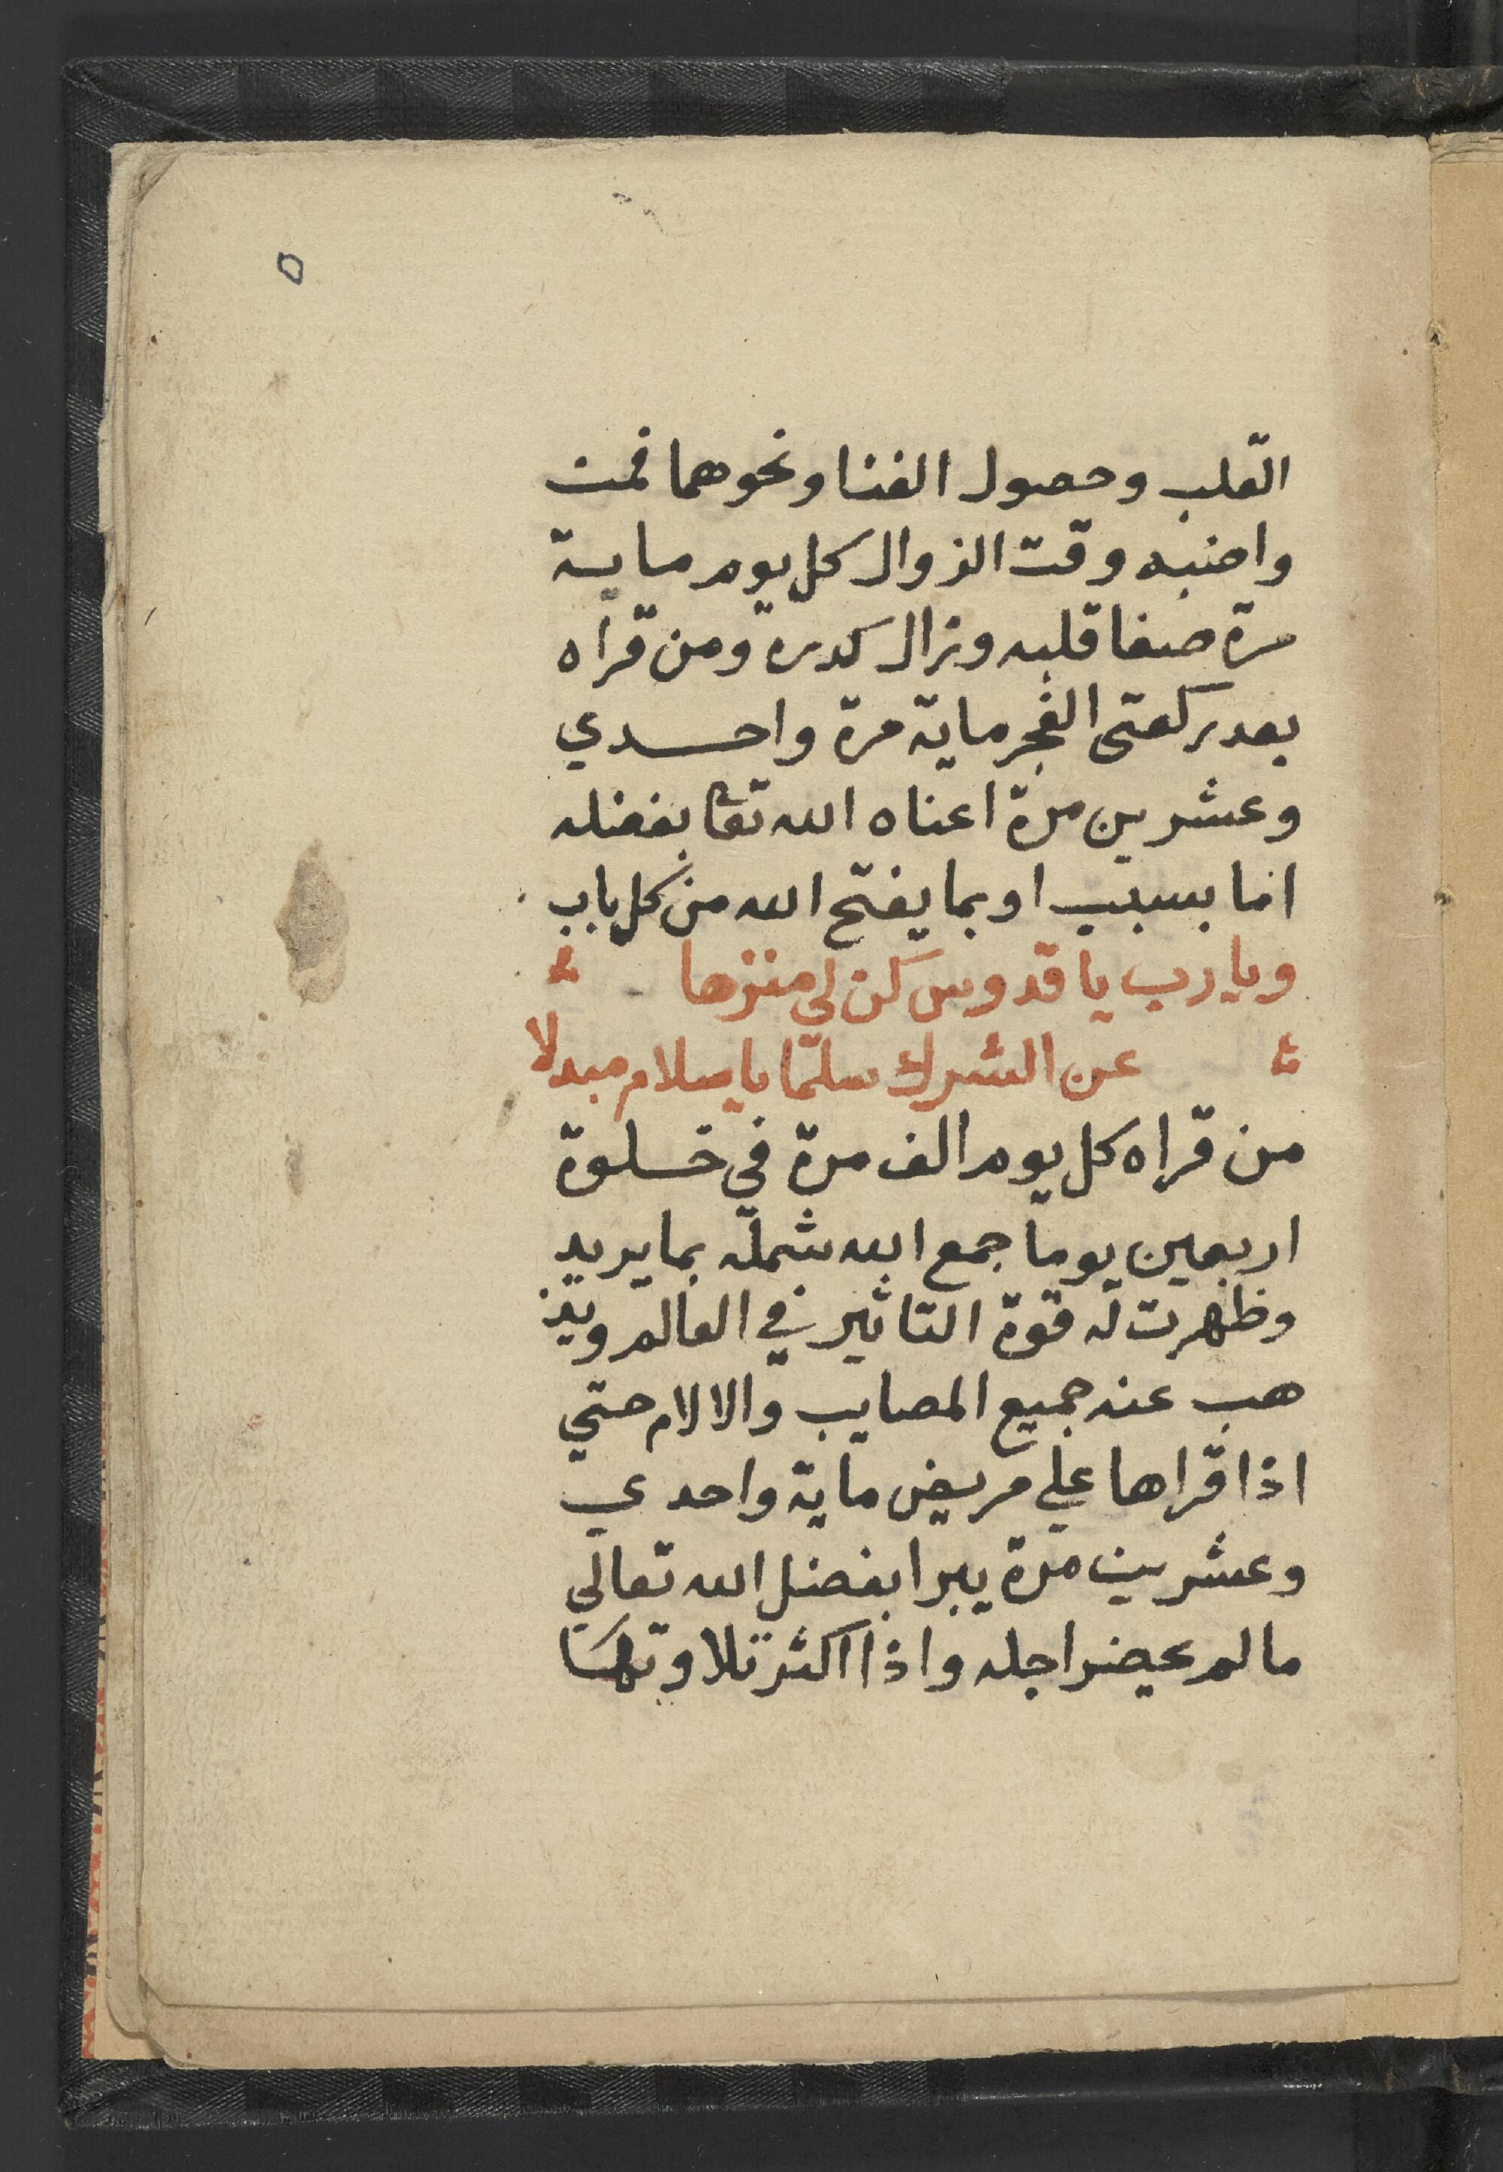 ٥
القلب وحصول الغنا ونحوهما فمن
واضبه وقت الزوال كل يوم ماية
مرة صفا قلبه وزال كدره ومن قراه
بعد ركعتى الفجر ماية مرة واحدي
وعشرين مرة اغناه الله تعا بفضله
اما بسبب او بما يفتح الله من كل باب
ويا رب يا قدوس كن لي منزها
عن الشرك سلما يا سلام مبدلا
من قراه كل يوم الف مرة في خلوة
اربعين يوما جمع الله شمله بما يريد
وظهرت له قوة التاثير في العالم ويذ
هب عنه جميع المصايب والالام حتي
اذا قراها علي مريض ماية واحدي
وعشرين مرة يبرا بفضل الله تعالي
ما لم يحضر اجله واذا اكثر تلاوتها